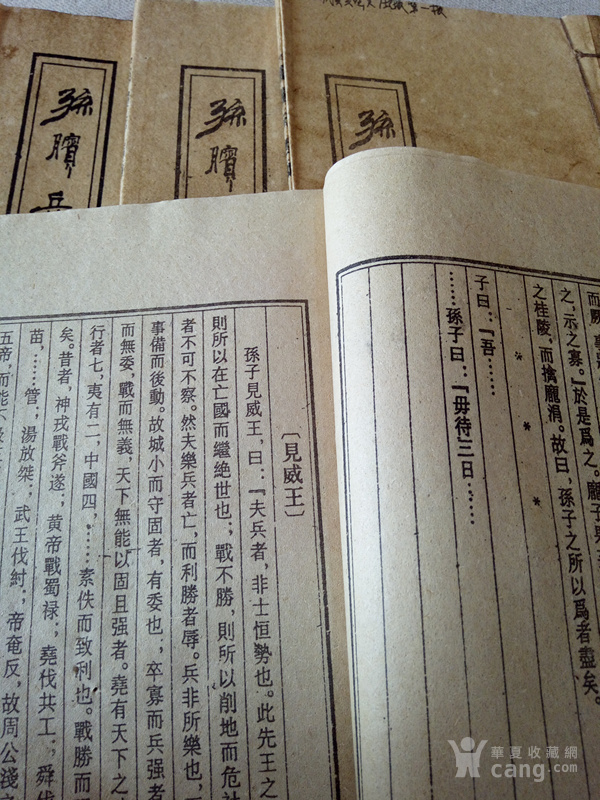 孫臏兵
孫臏
孫
之，示之寡。』於是爲之。龐子果
之桂陵，而擒龐涓。故曰，孫子之所以爲者盡矣。
* * *
子曰：『吾……
……孫子曰：『毋待三日……
〔見威王〕
孫子見威王，曰：『夫兵者，非士恒勢也。此先王之
則所以在亡國而繼絶世也；戰不勝，則所以削地而危社
者不可不察。然夫樂兵者亡，而利勝者辱。兵非所樂也，
事備而後動。故城小而守固者，有委也；卒寡而兵强者
而無委，戰而無義，天下無能以固且强者。堯有天下之
行者七，夷有二，中國四，……素佚而致利也。戰勝而
矣。昔者，神戎戰斧遂；黄帝戰蜀禄；堯伐共工；舜伐
苗，……管；湯放桀；武王伐紂；帝奄反，故周公淺之
五帝，而能不
華夏收藏網
cang.com